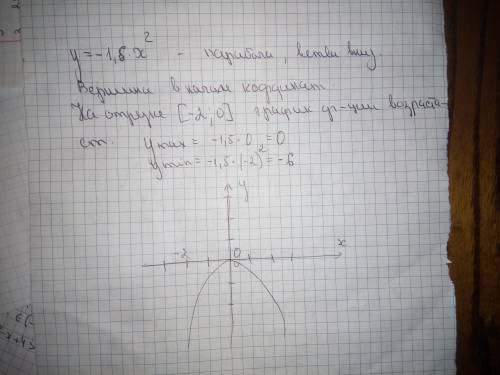 y = -1,5 · x² - парабола, ветви вниз.
Вершина в начале координат
На отрезке [-2, 0] график ф-ции возраста-
ет. yмах = -1,5 · 0 = 0
yмin = -1,5 · (-2)² = -6
y
x
-2
0